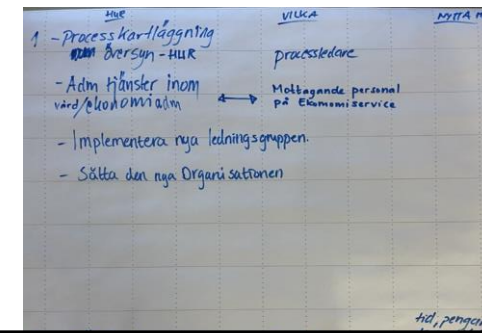 HUR VILKA NYTTA M
1 - Processkartläggning
översyn - HUR processledare
- Adm tjänster inom Mottagande personal
vård/ekonomiadm ↔ på Ekonomiservice
- Implementera nya ledningsgruppen.
- Sätta den nya Organisationen
tid, pengar